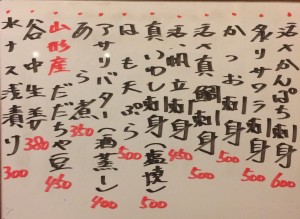 活〆かんぱち刺身 600
炙りサワラ刺身 500
かつお刺身 500
活〆真鯛刺身 500
活帆立刺身 450
真いわし刺身(塩焼) 500
はも天ぷら 500
アサリバター(酒蒸し) 400
あら煮 350
山形産だだちゃ豆 450
谷中生姜 380
水ナス浅漬り 300